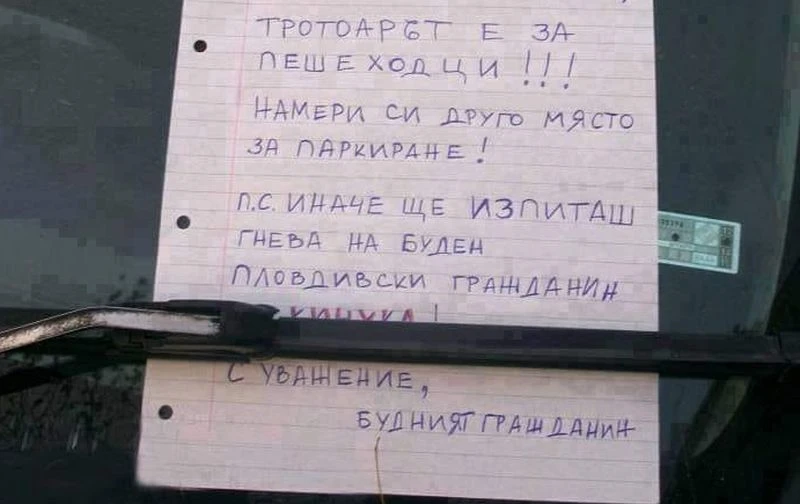 ТРОТОАРЪТ Е ЗА
ПЕШЕХОДЦИ!!!
НАМЕРИ СИ ДРУГО МЯСТО
ЗА ПАРКИРАНЕ!
П.С. ИНАЧЕ ЩЕ ИЗПИТАШ
ГНЕВА НА БУДЕН
ПЛОВДИВСКИ ГРАЖДАНИН
КИЧУКА!
С УВАЖЕНИЕ,
БУДНИЯТ ГРАЖДАНИН